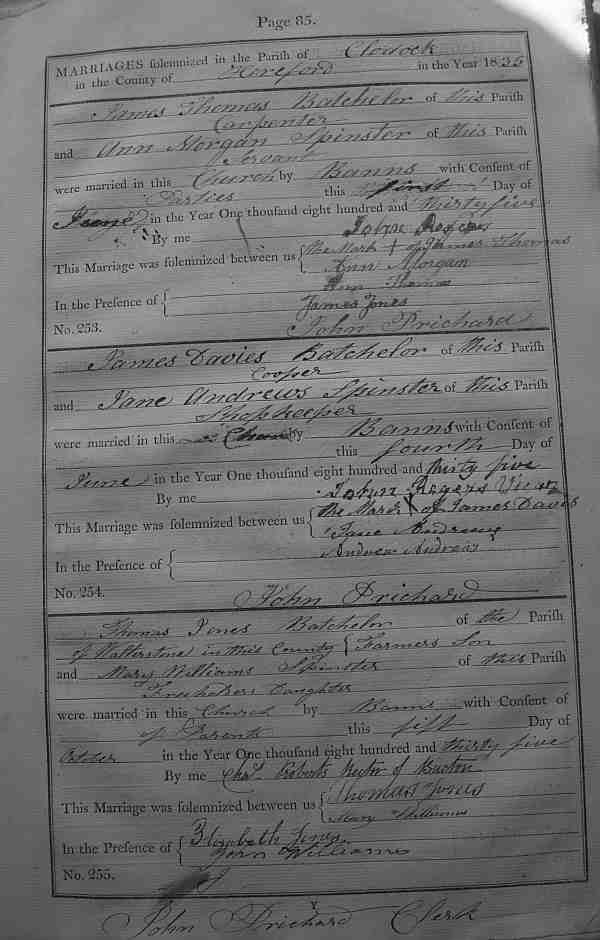 Page 85.
MARRIAGES solemnized in the Parish of Clodock
in the County of Hereford in the Year 1835
James Thomas Batchelor of this Parish
Carpenter
and Ann Morgan Spinster of this Parish
Servant
were married in this Church by Banns with Consent of
Parties this first Day of
June in the Year One thousand eight hundred and thirty five
By me John Rogers
This Marriage was solemnized between us { The Mark + of James Thomas
Ann Morgan
In the Presence of { Thomas
James Jones
No. 253. John Prichard
James Davies Batchelor of this Parish
Cooper
and Jane Andrews Spinster of this Parish
Shopkeeper
were married in this Church by Banns with Consent of
this fourth Day of
June in the Year One thousand eight hundred and thirty five
By me John Rogers Vicar
This Marriage was solemnized between us { The Mark X of James Davis
Jane Andrews
In the Presence of { Andrew Andrews
No. 254. John Prichard
Thomas Jones Batchelor of the Parish
of Walterstone in this County { Farmers Son
and Mary Williams Spinster of this Parish
Freeholders Daughter
were married in this Church by Banns with Consent of
of Parents this fift Day of
October in the Year One thousand eight hundred and thirty five
By me Chas. Roberts Rector of
This Marriage was solemnized between us { Thomas Jones
Mary Williams
In the Presence of { Elizabeth Jones
John Williams
No. 255.
John Prichard Clerk